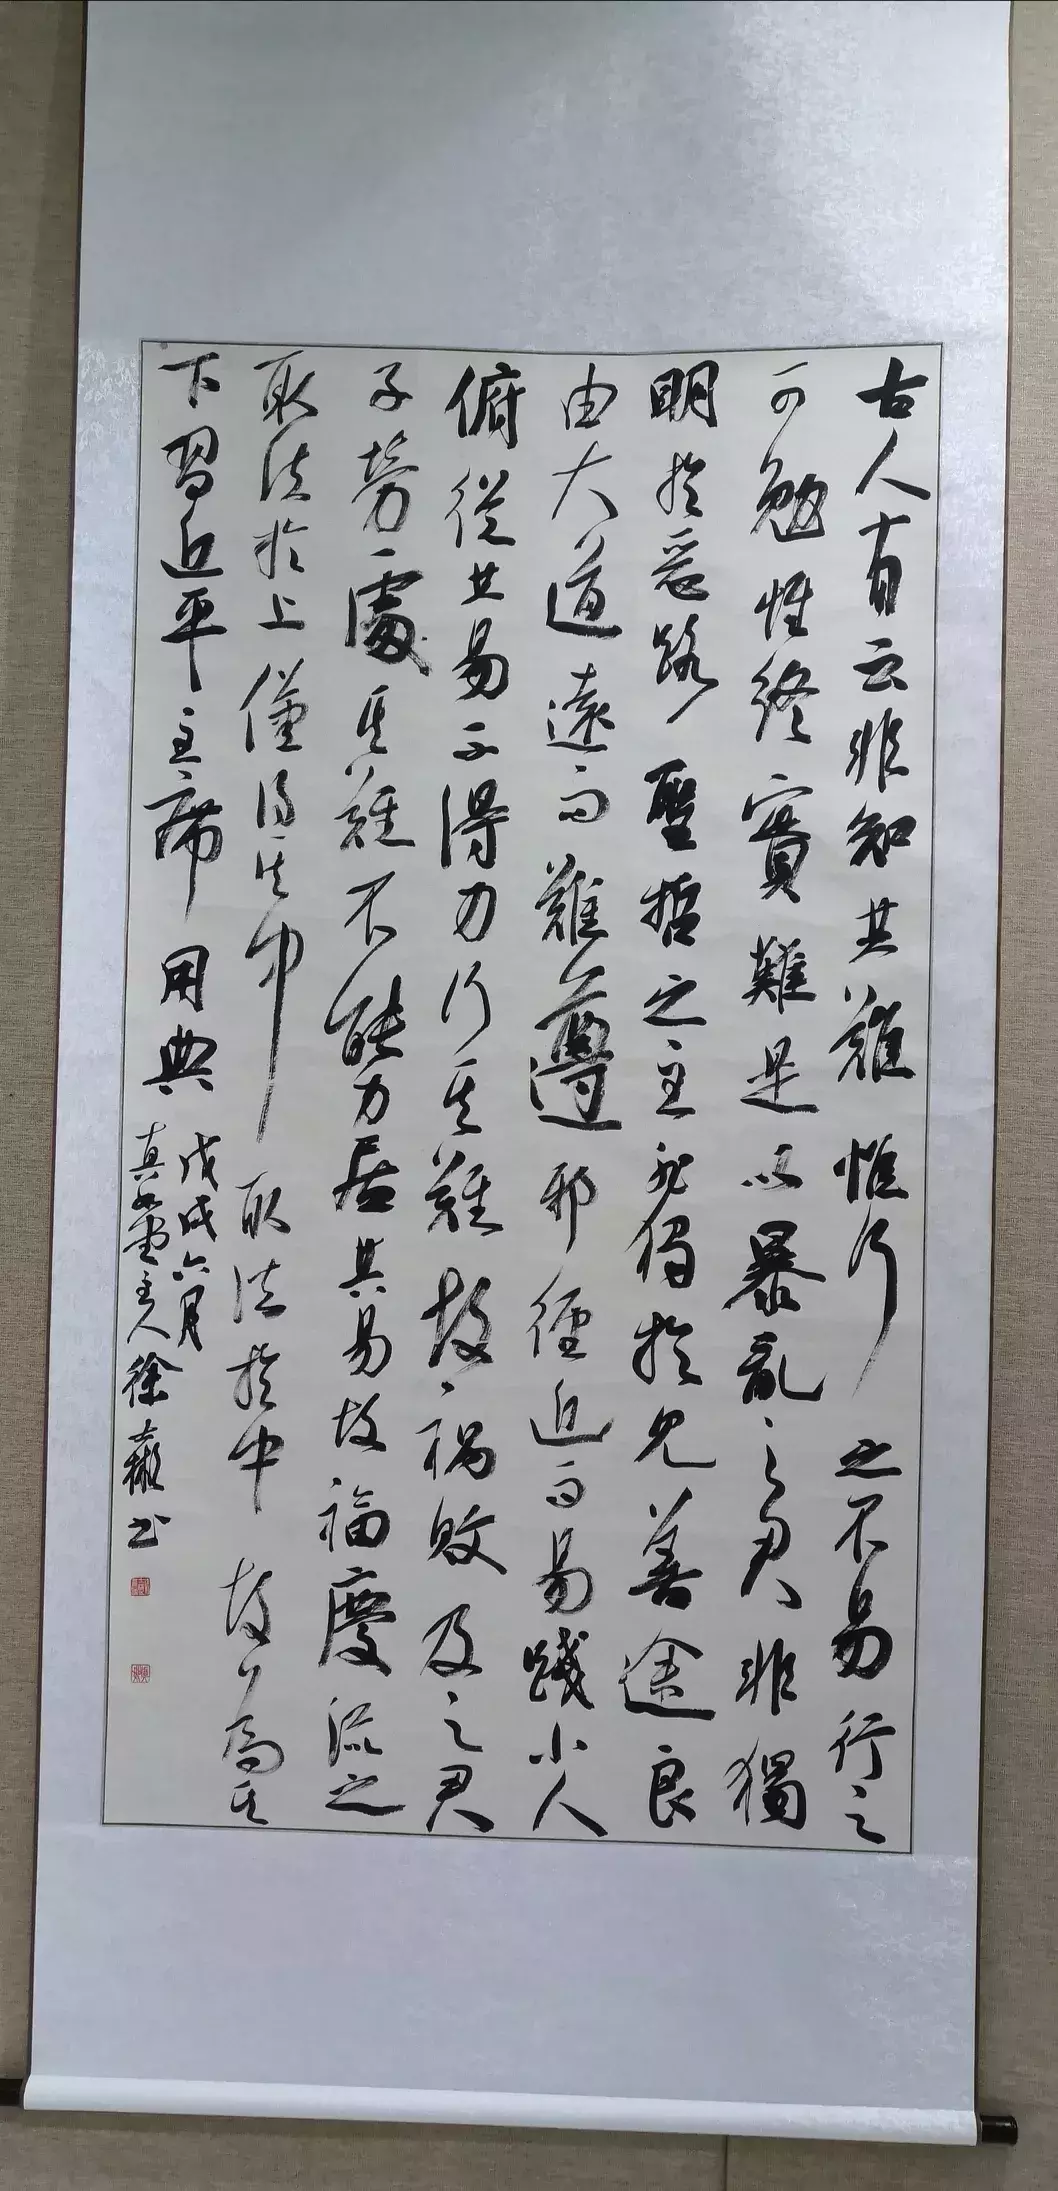 古人有云非知其難惟行之不易行之
可勉惟終實難是以暴亂之君非獨
明於惡路聖哲之主非獨於見善途良
由大道遠而難遵邪徑近而易踐小人
俯從其易不得力行其難故禍敗及之君
子勞處其難不能力居其易故福慶流之
取法於上僅得其中取法於中故為其
下習近平主席用典
戊戌六月
真如堂主人徐书